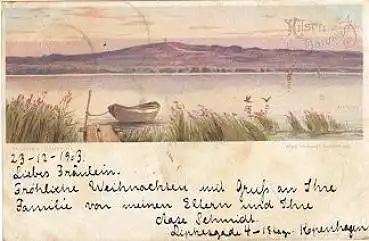 Hilsen fra
23-12-1903.
Liebes Fräulein.
Fröhliche Weihnachten mit Gruß an Ihre
Familie von meinen Eltern und Ihre
Aase Schmidt.
4 - Kopenhagen